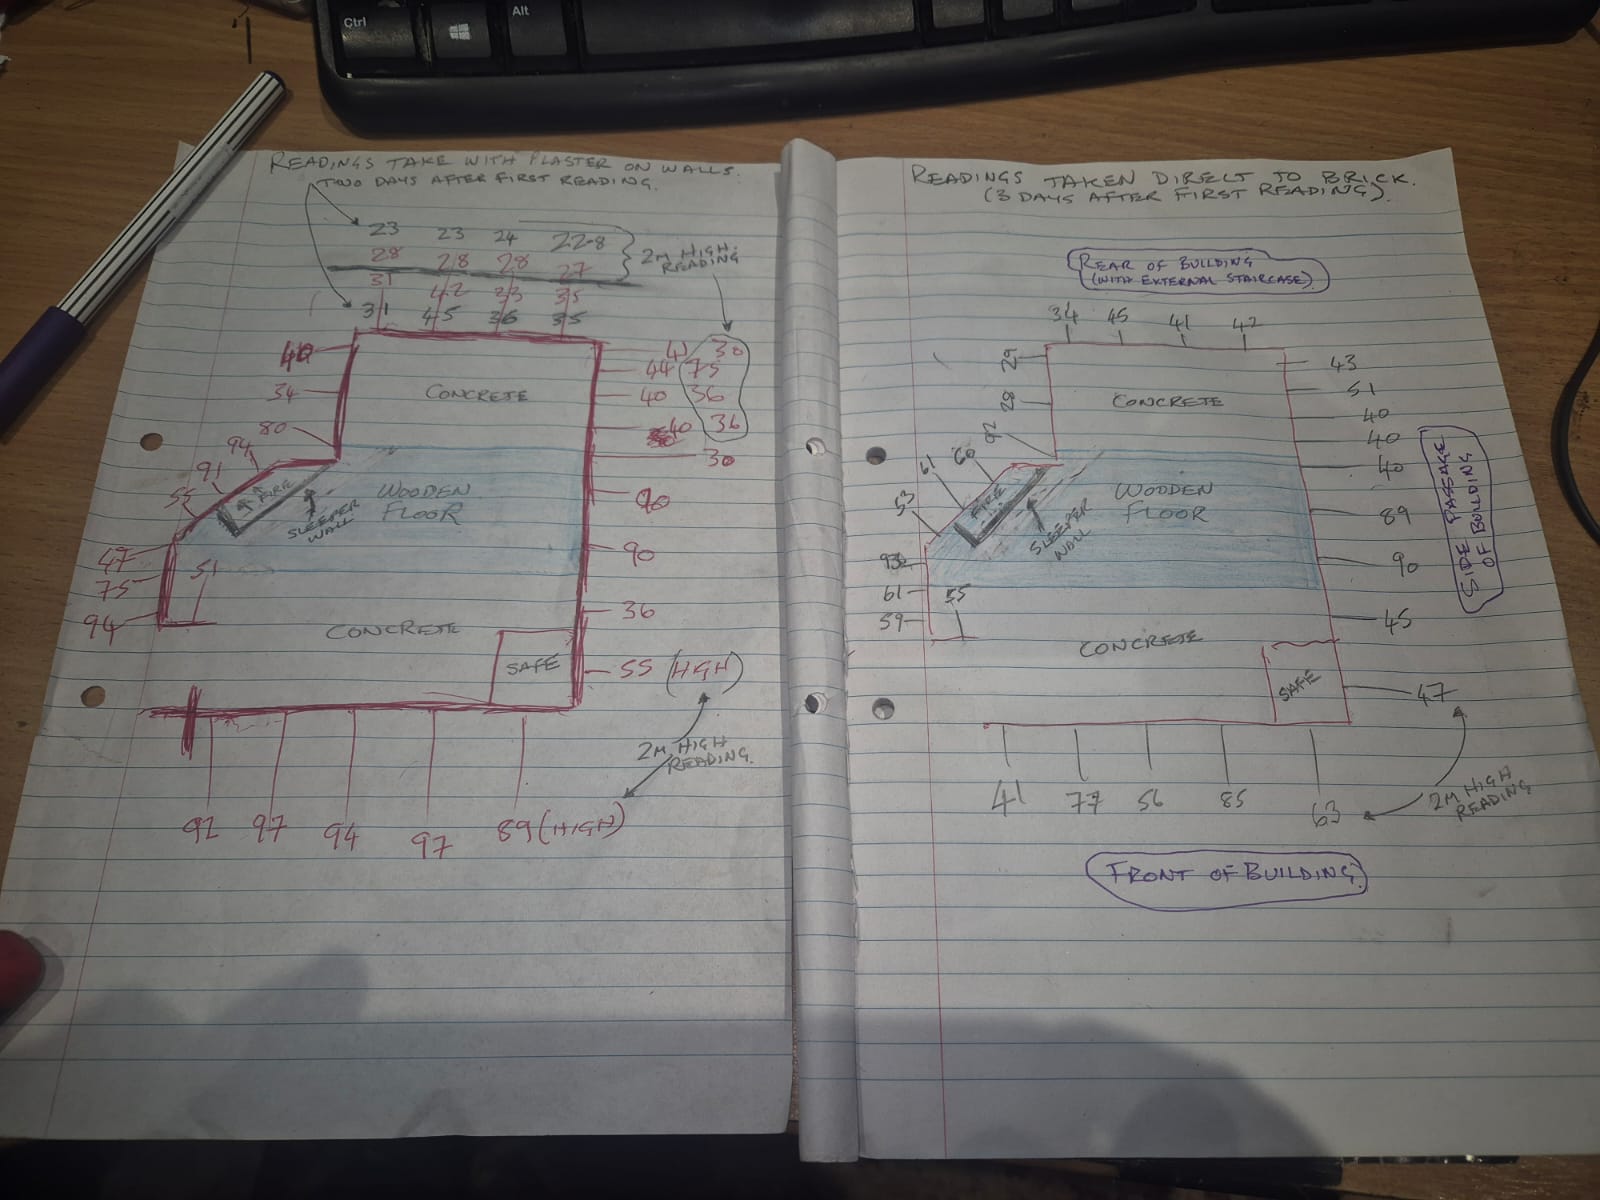 Ctrl
Alt
READINGS TAKE WITH PLASTER ON WALLS.
TWO DAYS AFTER FIRST READING.
23 23 24 22.8
28 28 28 27
2M HIGH
READING
31 42 33 35
31 45 36 35
40
34
80
94
91
55
47
75
94
51
41 30
44 75
40 36
40 36
30
90
90
36
55 (HIGH)
CONCRETE
FIRE
SLEEPER
WALL
WOODEN
FLOOR
CONCRETE
SAFE
2M HIGH
READING.
92 97 94 97 89 (HIGH)
READINGS TAKEN DIRECT TO BRICK.
(3 DAYS AFTER FIRST READING).
REAR OF BUILDING
(WITH EXTERNAL STAIRCASE)
34 45 41 42
29
28
92
60
61
53
61
59
55
43
51
40
40
40
89
90
45
47
CONCRETE
FIRE
SLEEPER
WALL
WOODEN
FLOOR
CONCRETE
SAFE
SIDE PASSAGE
OF BUILDING
2M HIGH
READING
41 77 56 85 63
FRONT OF BUILDING